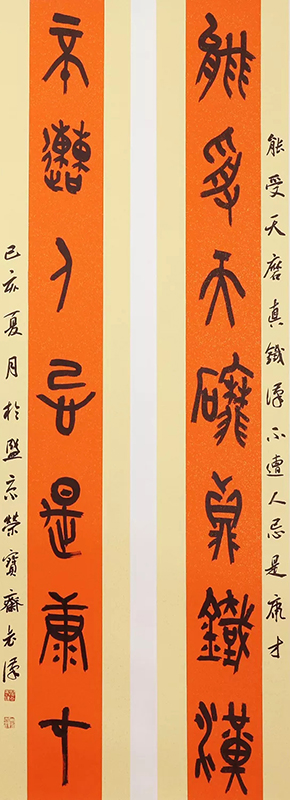 能受天磨真鐵漢不遭人忌是庸才
能受天磨真鐵漢
不遭人忌是庸才
己亥夏月於盛京榮寶齋